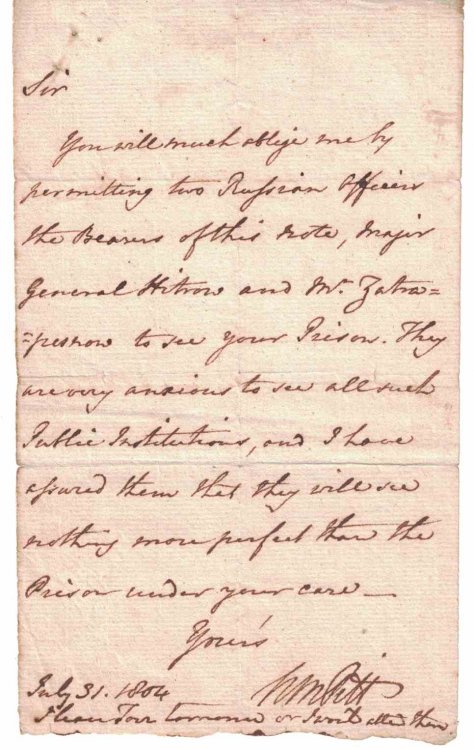 Sir
You will much oblige me by
permitting two Russian Officers
the Bearers of this Note, Major
General Hitrow and Mr. Zatra=
=pesnow to see your Prison. They
are very anxious to see all such
Public Institutions, and I have
assured them that they will see
nothing more perfect than the
Prison under your care —
Your's
July 31. 1804 Wm Pitt
I leave Town tomorrow or I would attend them